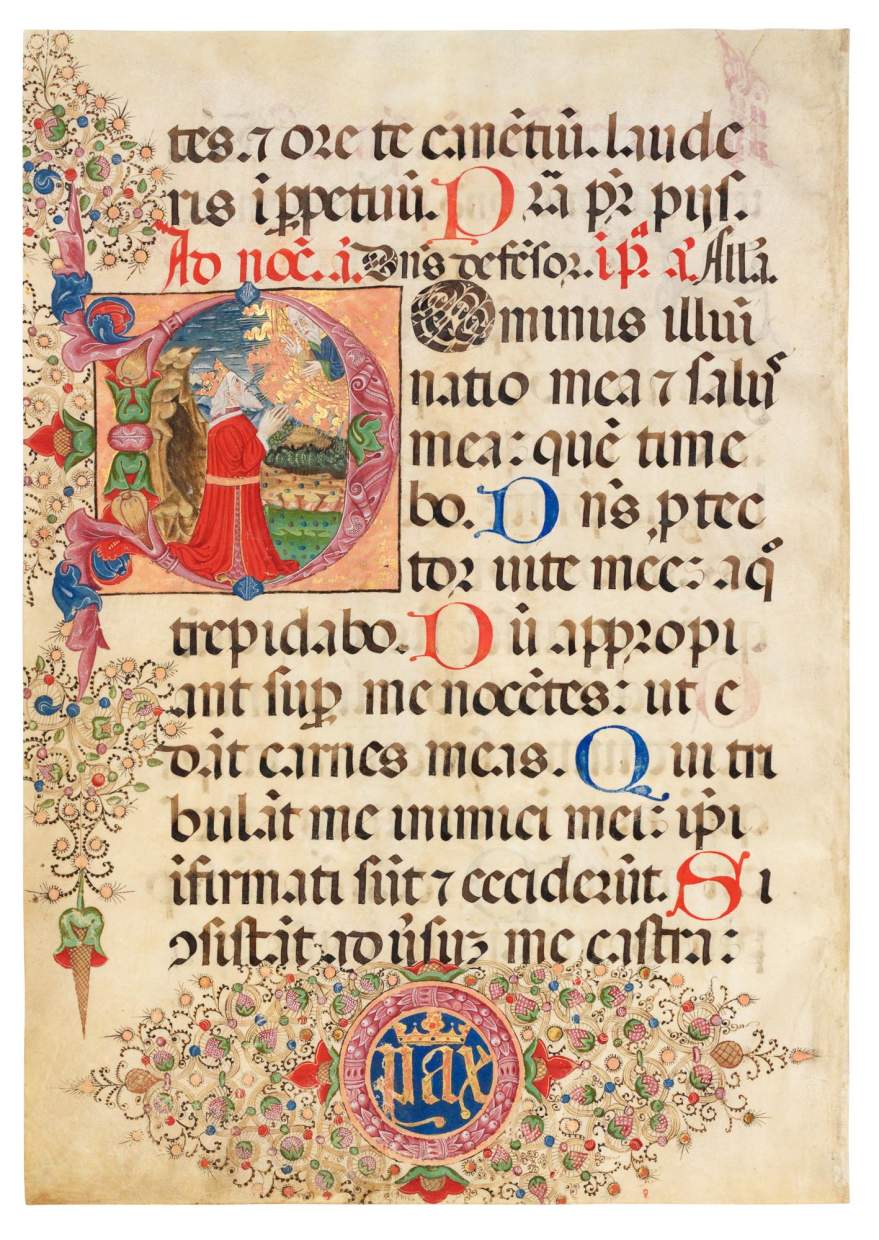 tes. ⁊ ore te canētiū. laude
ris ī ꝑpetuū. D r̄a pr̄ pijs.
Ad noc̄. ā. Dn̄s defēsor. ip̄. x̄. Allā.
Dominus illūi
natio mea ⁊ salus
mea: quē time
bo. D n̄s ꝓtec
tor uite mee: a q°
trepidabo. D ū appropi
ant suꝑ me nocētes: ut e
dāt carnes meas. Q ui tri
bulāt me inimici mei: ip̄i
īfirmati sūt ⁊ ceciderūt. S i
ↄsistāt aduersuʒ me castra:
pax